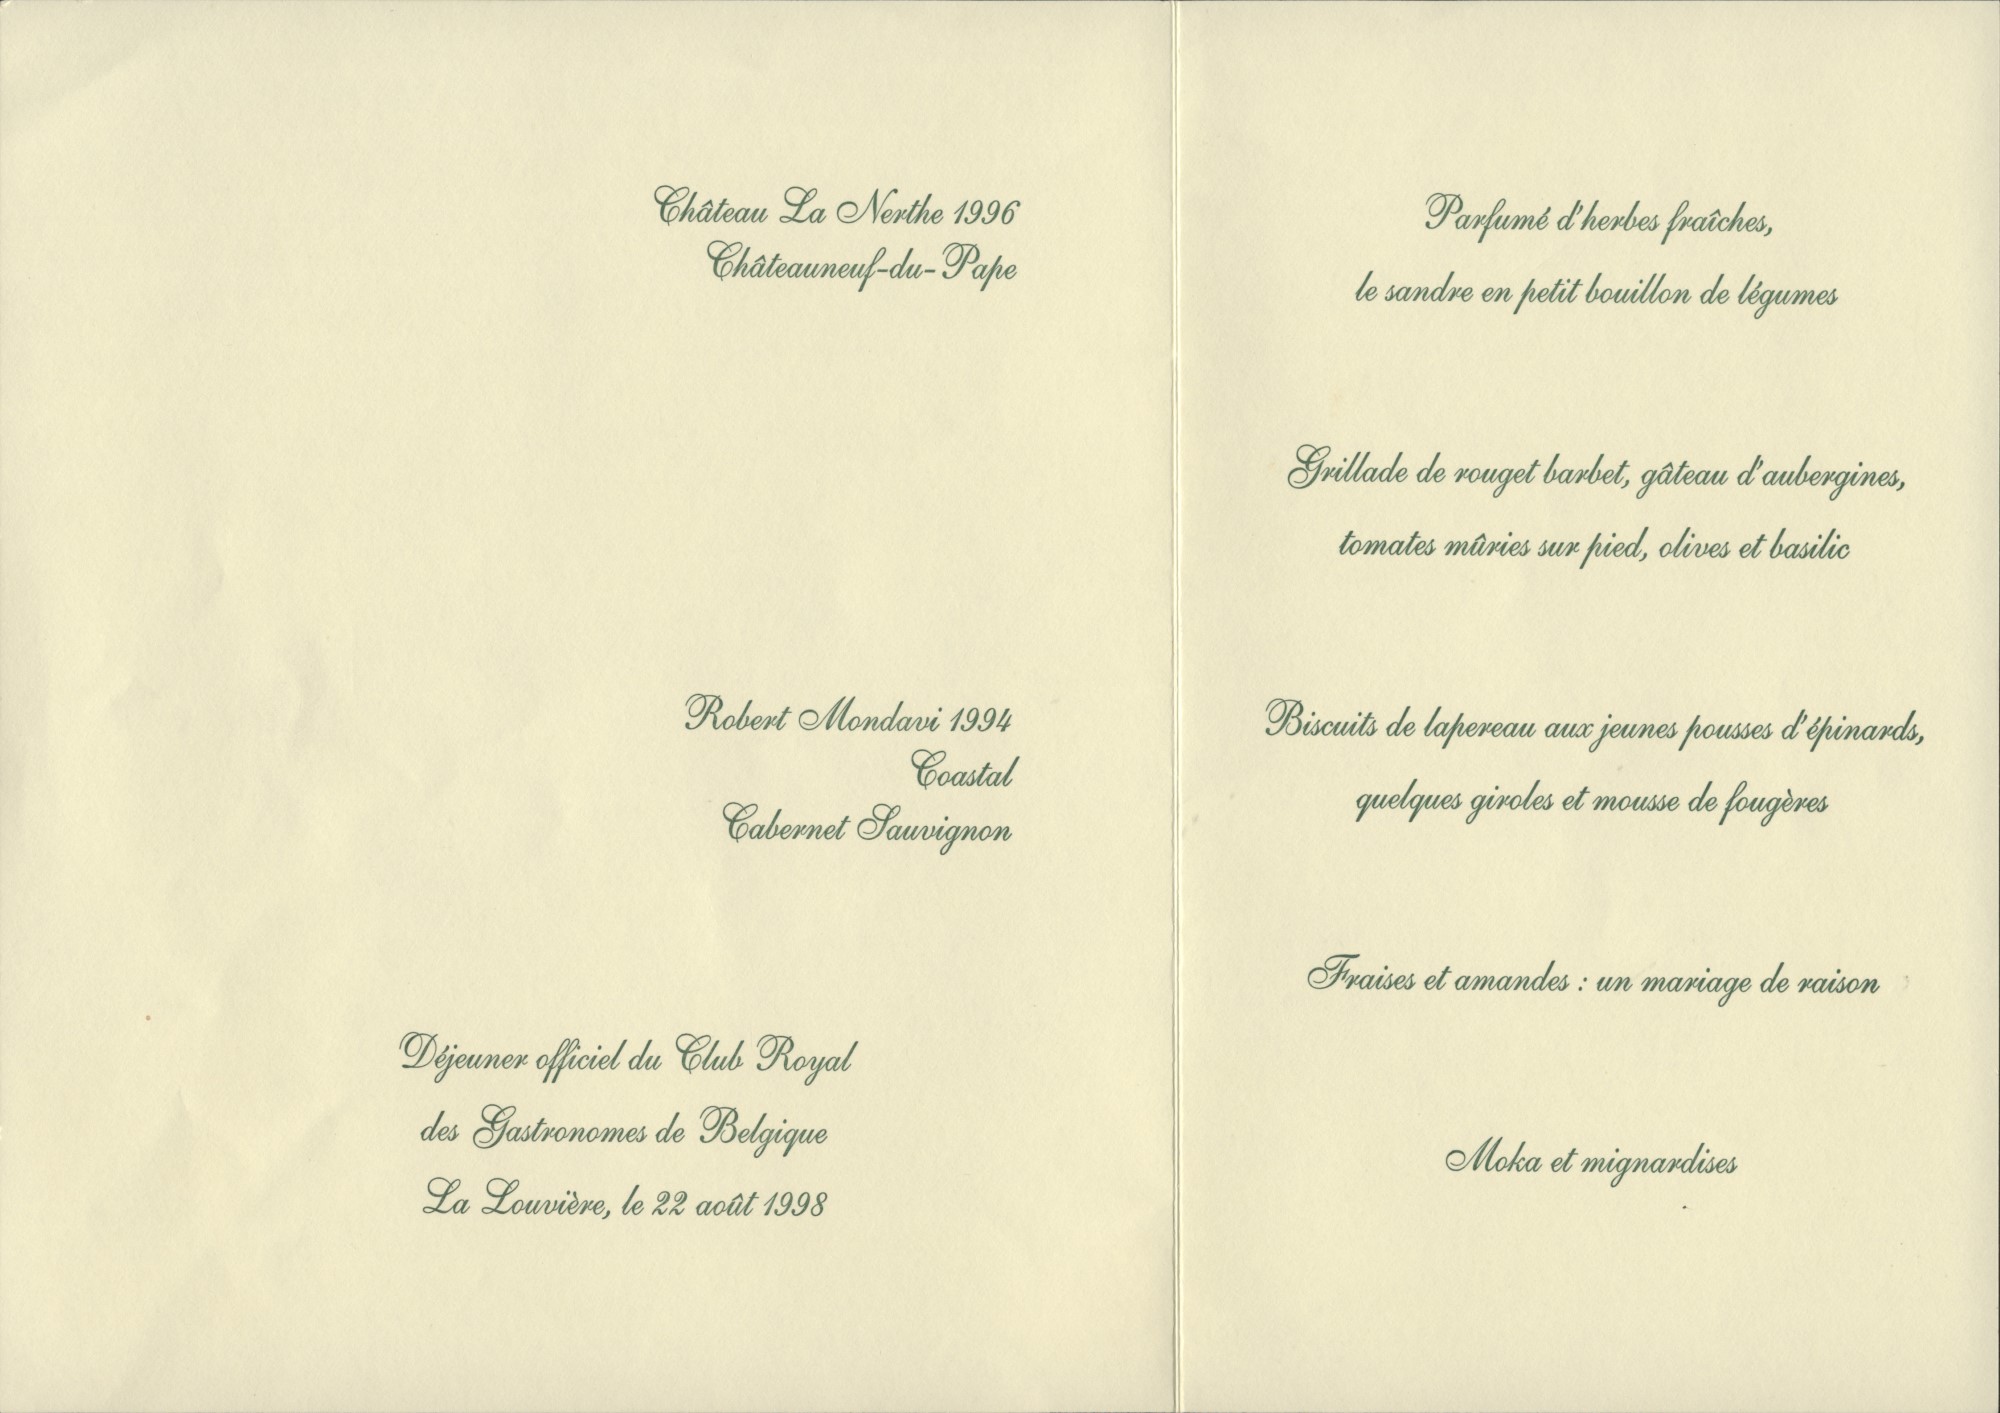 Château La Nerthe 1996
Châteauneuf-du-Pape
Robert Mondavi 1994
Coastal
Cabernet Sauvignon
Déjeuner officiel du Club Royal
des Gastronomes de Belgique
La Louvière, le 22 août 1998
Parfumé d'herbes fraîches,
le sandre en petit bouillon de légumes
Grillade de rouget barbet, gâteau d'aubergines,
tomates mûries sur pied, olives et basilic
Biscuits de lapereau aux jeunes pousses d'épinards,
quelques giroles et mousse de fougères
Fraises et amandes : un mariage de raison
Moka et mignardises